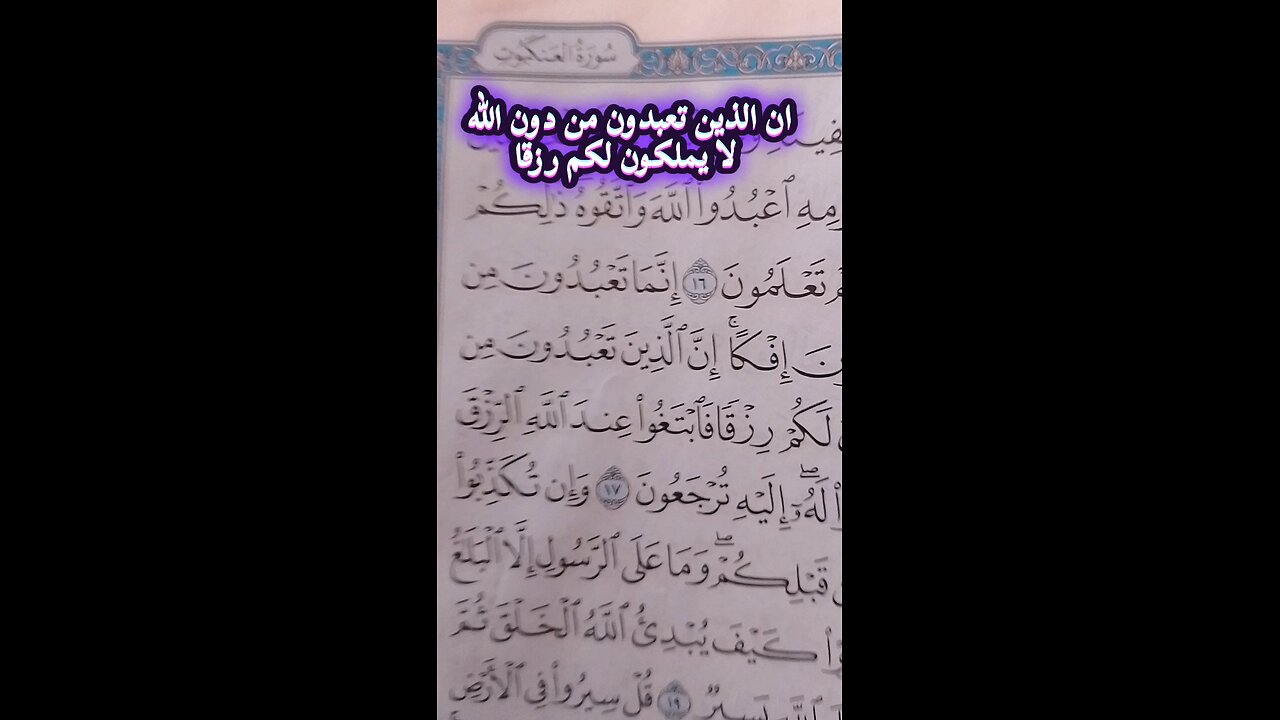 سُورَةُ العَنكَبُوتِ
ان الذين تعبدون من دون الله
لا يملكون لكم رزقا
ٱعۡبُدُواْ ٱللَّهَ وَٱتَّقُوهُۖ ذَٰلِكُمۡ
تَعۡلَمُونَ ١٦ إِنَّمَا تَعۡبُدُونَ مِن
إِفۡكًاۚ إِنَّ ٱلَّذِينَ تَعۡبُدُونَ مِن
لَكُمۡ رِزۡقٗا فَٱبۡتَغُواْ عِندَ ٱللَّهِ ٱلرِّزۡقَ
لَهُۥٓۖ إِلَيۡهِ تُرۡجَعُونَ ١٧ وَإِن تُكَذِّبُواْ
قَبۡلِكُمۡۖ وَمَا عَلَى ٱلرَّسُولِ إِلَّا ٱلۡبَلَٰغُ
كَيۡفَ يُبۡدِئُ ٱللَّهُ ٱلۡخَلۡقَ ثُمَّ
ٱللَّهِ يَسِيرٞ ١٩ قُلۡ سِيرُواْ فِي ٱلۡأَرۡضِ